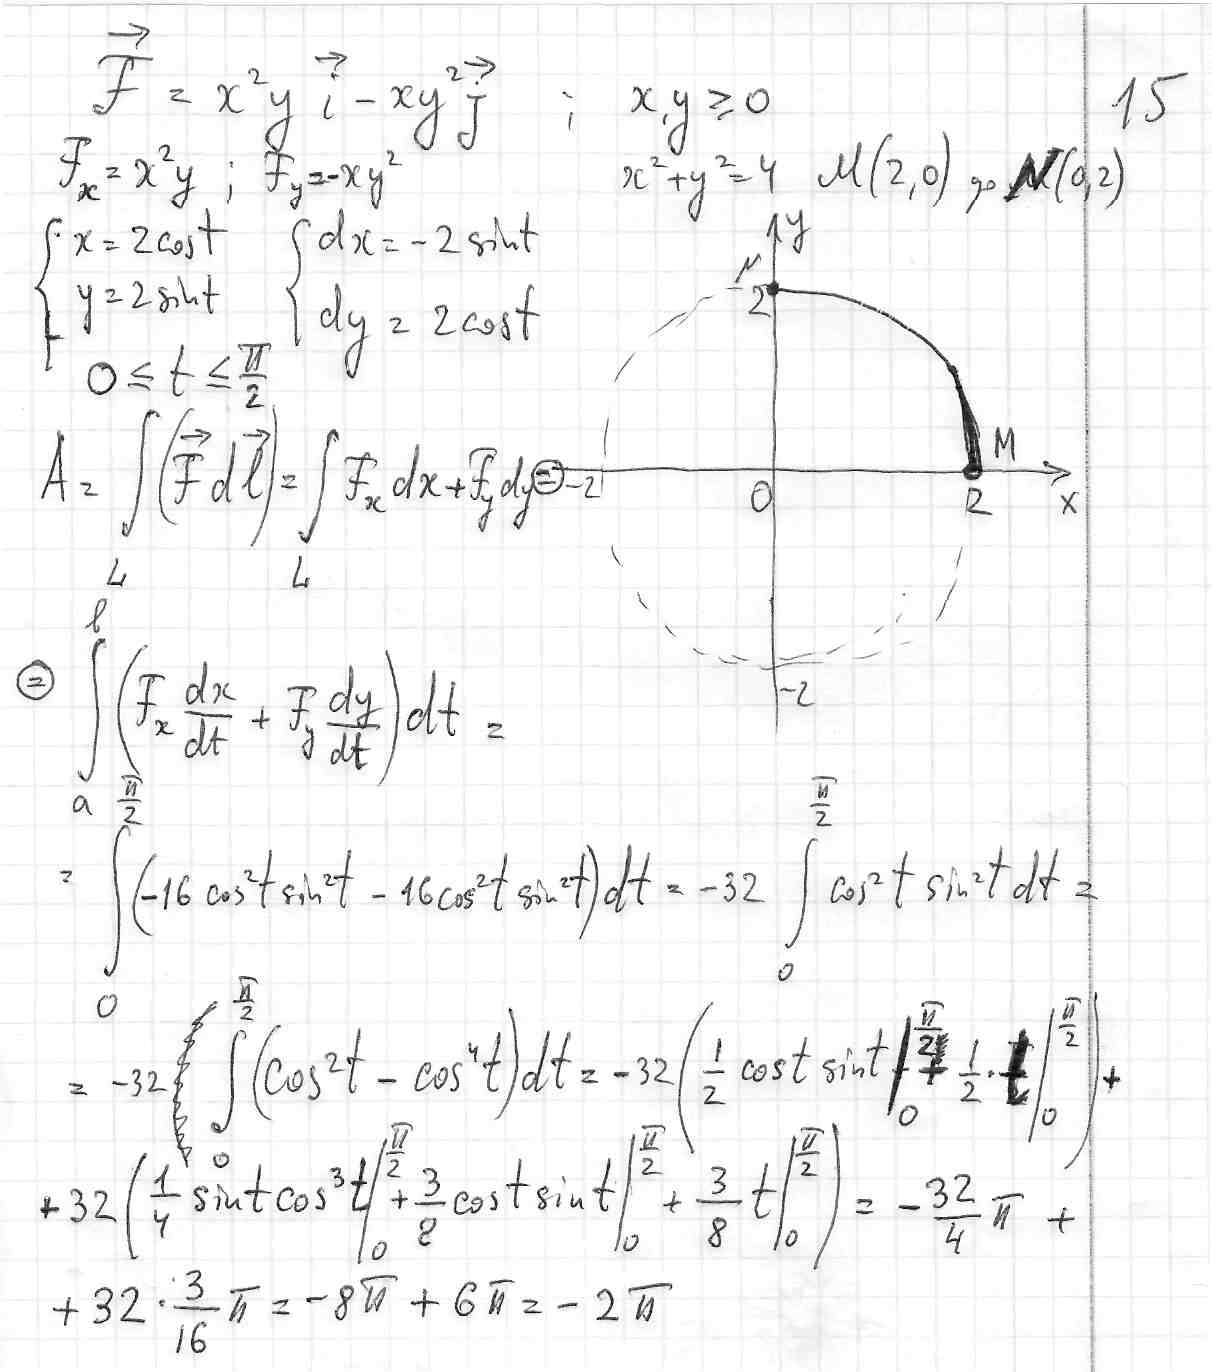 F⃗ = x²y i⃗ − xy² j⃗ ; x,y ≥ 0
15
Fₓ = x²y ; F_y = −xy²
x² + y² = 4 M(2,0) до N(0,2)
{ x = 2cost { dx = −2 sint
{ y = 2 sint { dy = 2cost
0 ≤ t ≤ π/2
y
N
2
M
−2
0
2
x
−2
A = ∫_L (F⃗ dl⃗) = ∫_L Fₓ dx + F_y dy ⊜
⊜ ∫_a^b (Fₓ dx/dt + F_y dy/dt) dt =
= ∫_0^{π/2} (−16 cos²t sin²t − 16cos²t sin²t) dt = −32 ∫_0^{π/2} cos²t sin²t dt =
= −32 ∫_0^{π/2} (cos²t − cos⁴t) dt = −32 (1/2 cost sint |_0^{π/2} + 1/2 · t |_0^{π/2}) +
+ 32 (1/4 sint cos³t |_0^{π/2} + 3/8 cost sint |_0^{π/2} + 3/8 t |_0^{π/2}) = − 32/4 π +
+ 32 · 3/16 π = −8π + 6π = −2π